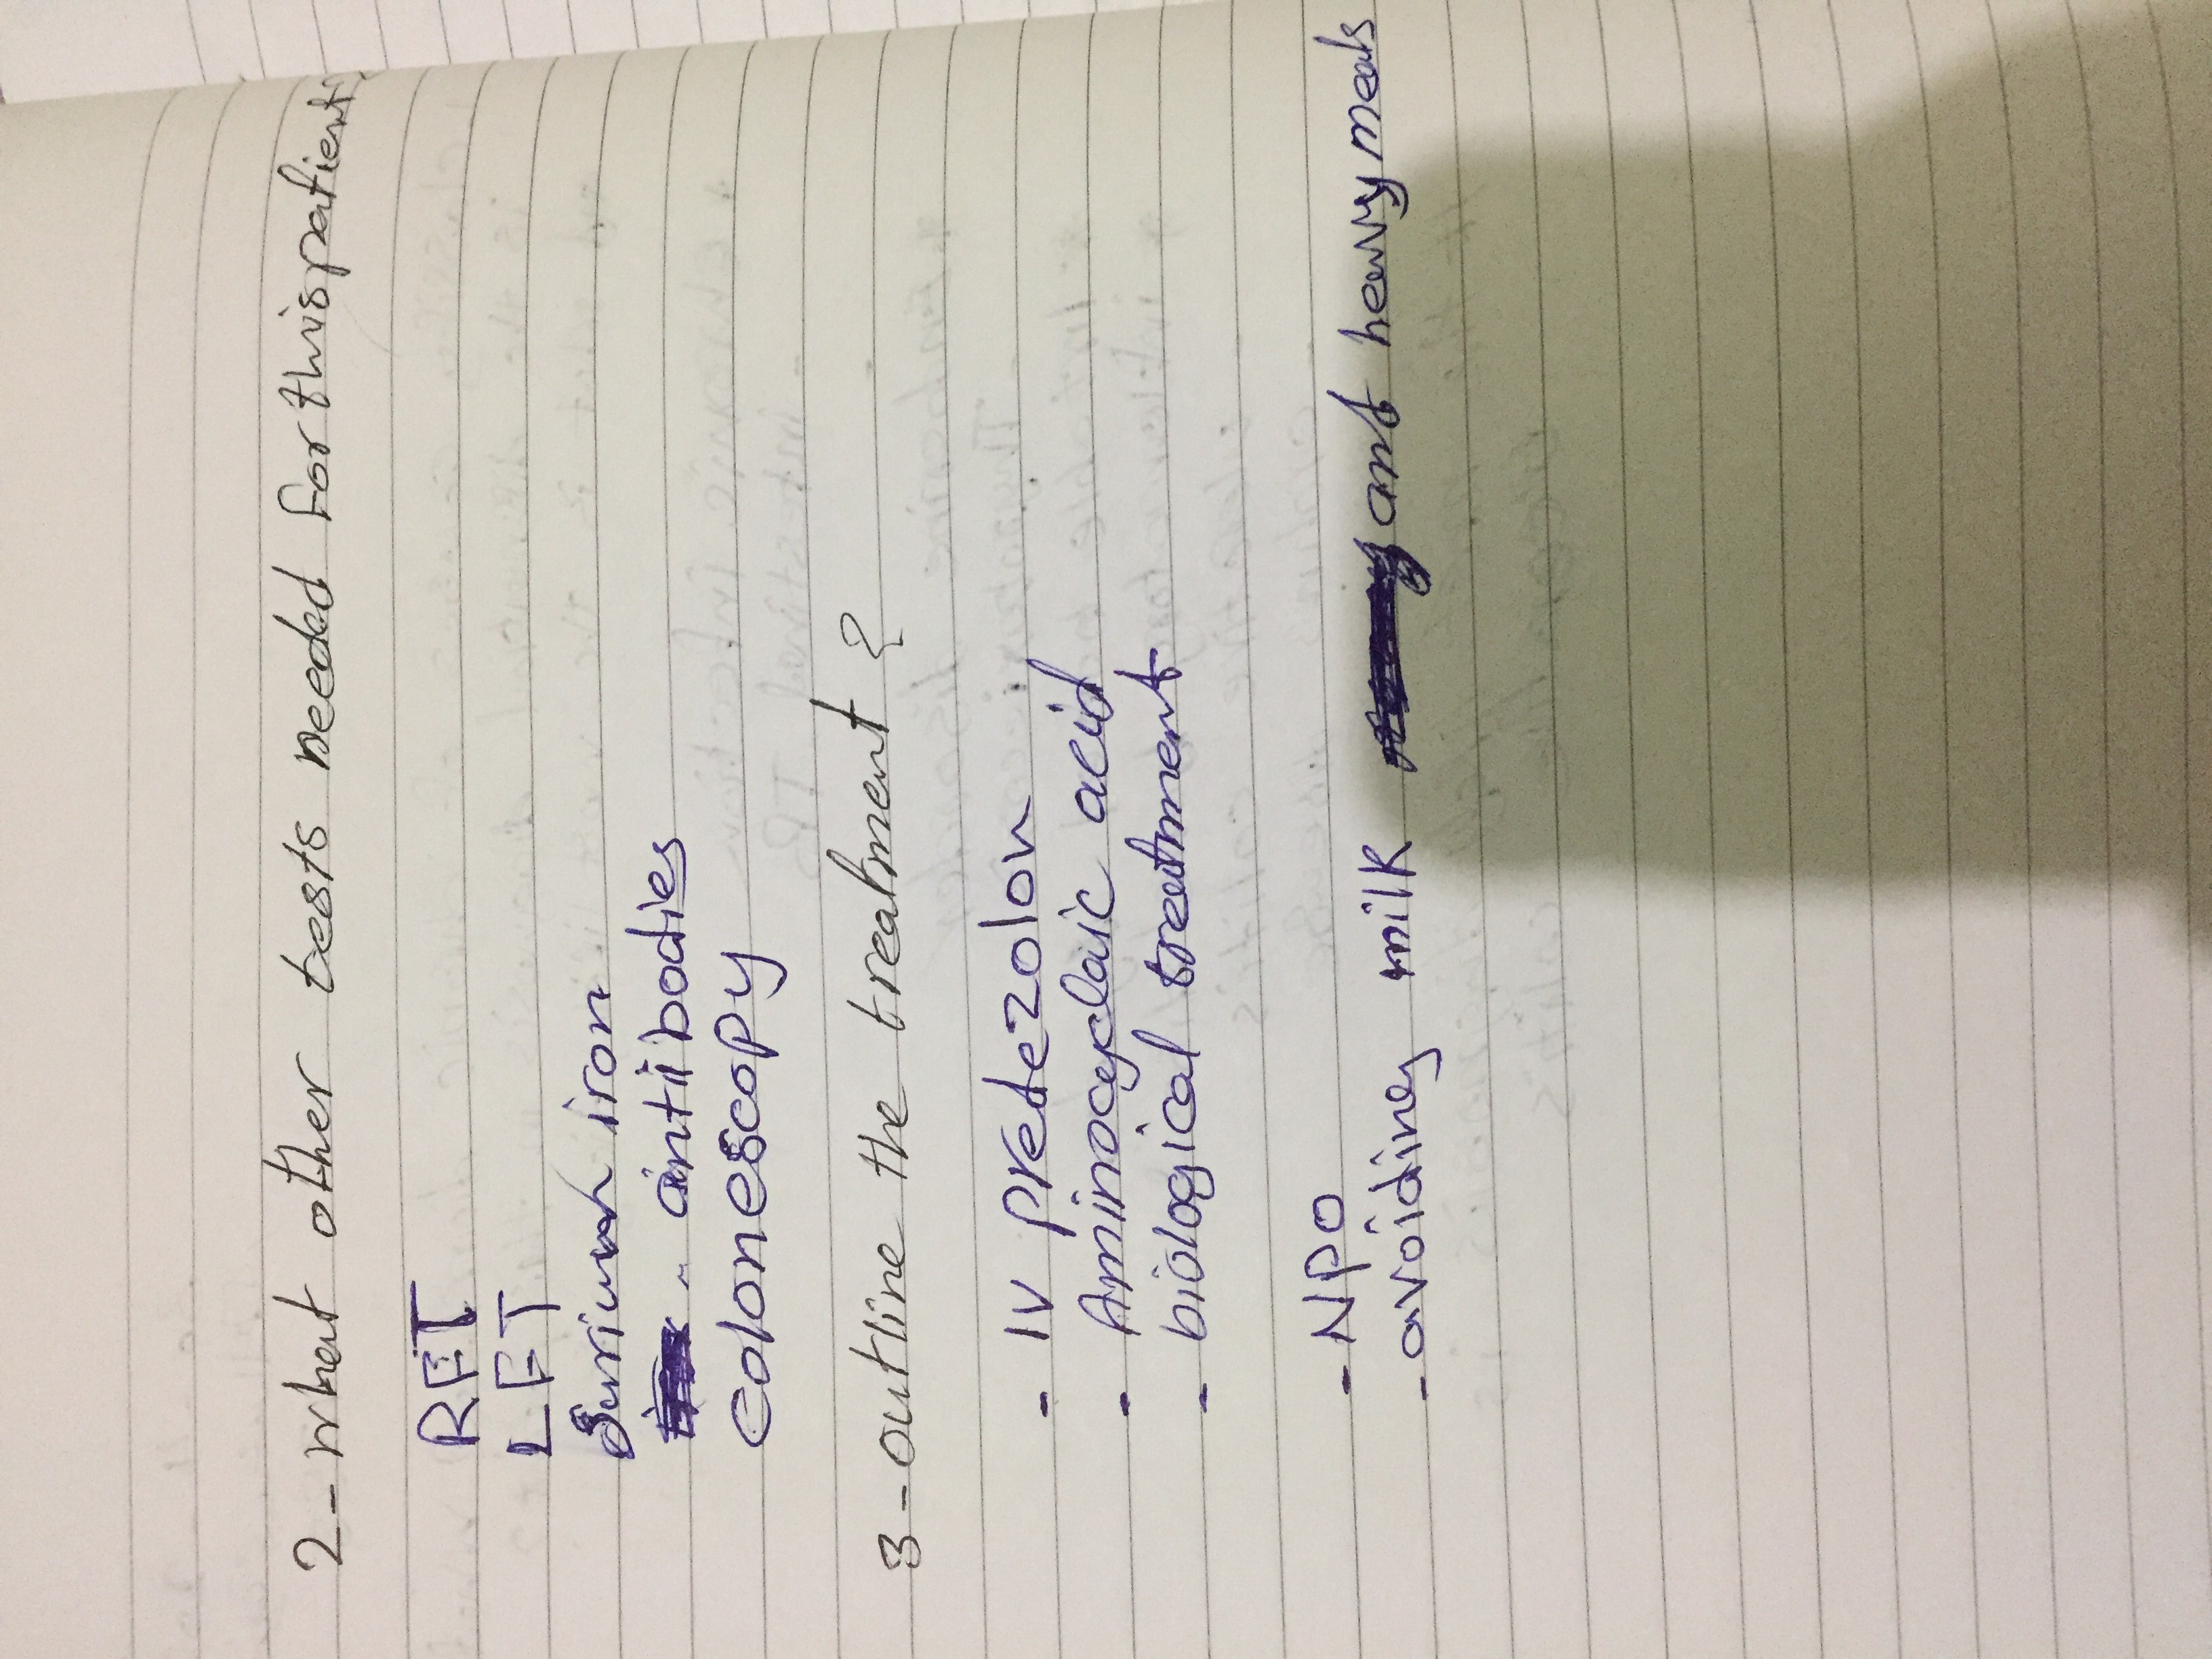 2-what other tests needed for this patient?
RFT
LFT
Suriumh iron
- antibodies
Colonescopy
3-outline the treatment?
- IV predezolon
- Aminocyclaic acid
- biological treatment
- NPO
- avoiding milk ant heavy meals